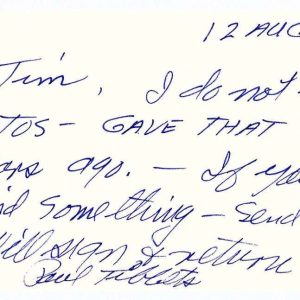 12 AUG
Tim, I do not
TOS - GAVE THAT
ago. - If yo
d something - Send
ill sign & return
Paul Tibbets